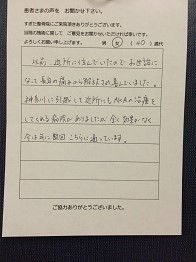 患者さまの声を お聞かせ下さい。
すぎた整骨院にご来院頂きありがとうございます。
当院の施術に関して ご意見をお聞かせいただければ幸いです。
よろしくお願い申し上げます。 男 女 (40)歳代
以前、近所に住んでいたのでお世話に
なって長年の痛みから解放され喜んでいました。
神奈川に引越して近所にもAKAの治療を
してくれる病院がありましたが全く効果がなく
今は年に数回こちらに通っています。
ご協力ありがとうございました。